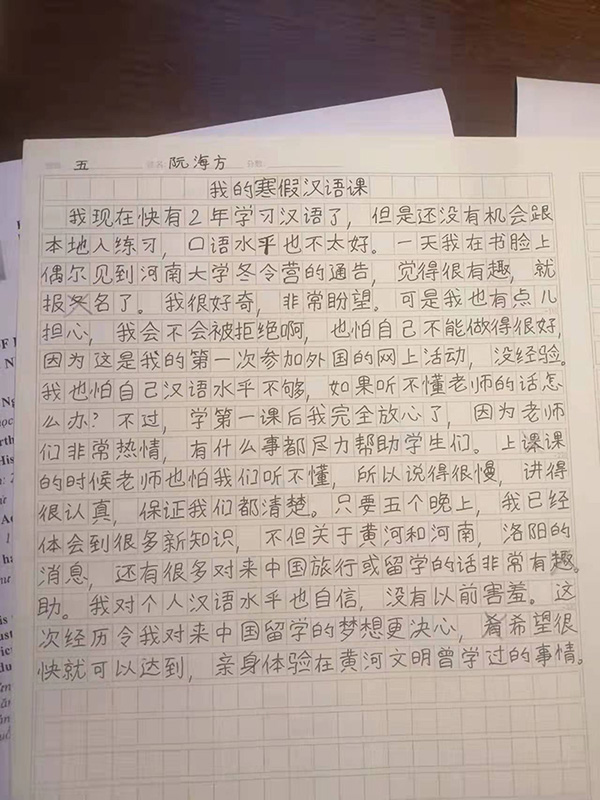 五 姓名: 阮海方 分数:
我的寒假汉语课
我现在快有2年学习汉语了，但是还没有机会跟
本地人练习，口语水平也不太好。一天我在书脸上
偶尔见到河南大学冬令营的通告，觉得很有趣，就
报名了。我很好奇，非常盼望。可是我也有点儿
担心，我会不会被拒绝啊，也怕自己不能做得很好，
因为这是我的第一次参加外国的网上活动，没经验。
我也怕自己汉语水平不够，如果听不懂老师的话怎
么办？不过，学第一课后我完全放心了，因为老师
们非常热情，有什么事都尽力帮助学生们。上课
的时候老师也怕我们听不懂，所以说得很慢，讲得
很认真，保证我们都清楚。只要五个晚上，我已经
体会到很多新知识，不但关于黄河和河南，洛阳的
消息，还有很多对来中国旅行或留学的话非常有趣。
助。我对个人汉语水平也自信，没有以前害羞。这
次经历令我对来中国留学的梦想更决心，希望很
快就可以达到，亲身体验在黄河文明曾学过的事情。